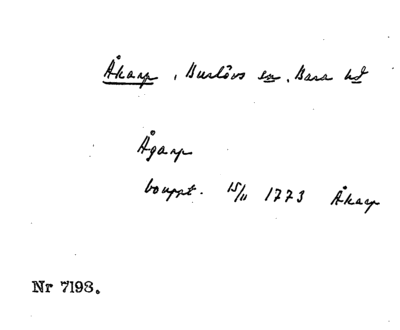 Åkarp, Burlövs sn, Bara hd
Ågarp
bouppt. 15/11 1773 Åkarp
Nr 7193.